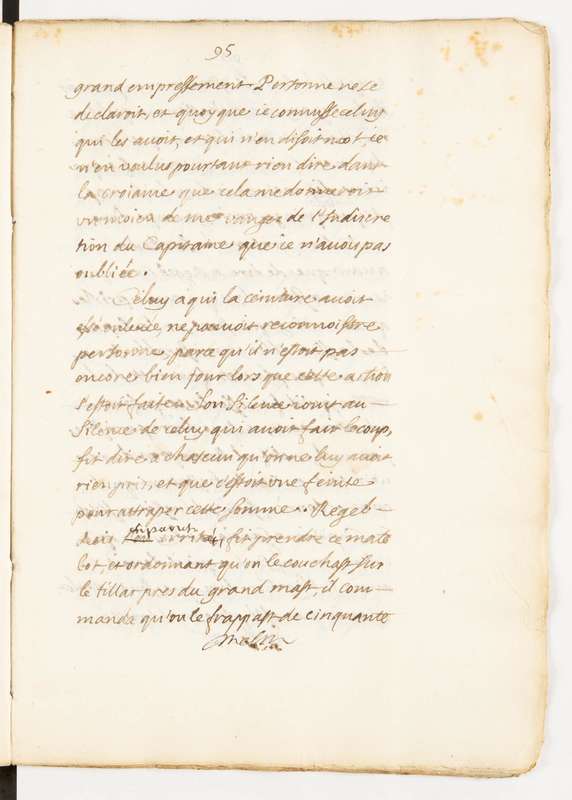 95
grand empressement Personne ne se
declaroit, et quoyque ie connusse celuy
qui les avoit, et qui n'en disoit mot, ie
n'en voulus pourtant rien dire dans
la croiance que cela me donneroit
un moien de me vanger de l'Indiscre
tion du Capitaine que ie n'avois pas
oubliée.
Celuy a qui la ceinture avoit
esté enlevée, ne pouvoit reconnoistre
personne, parce qu'il n'estoit pas
encore bien Jour lorsque cette action
s'estoit faite. Son Silence ioint au
Silence de celuy qui avoit fait le coup,
fit dire a chascun qu'on ne luy avoit
rien pris, et que c'estoit une feinte
pour attraper cette Somme. Regeb
irrité, fit prendre ce mate
lot et ordonnant qu'on le couchast sur
le tillac pres du grand mast, il com
manda qu'on le frappast de cinquante